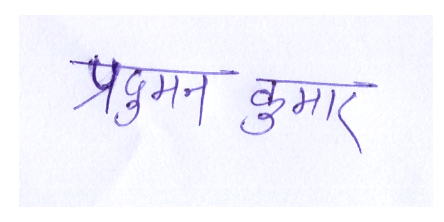 प्रदुमन कुमार